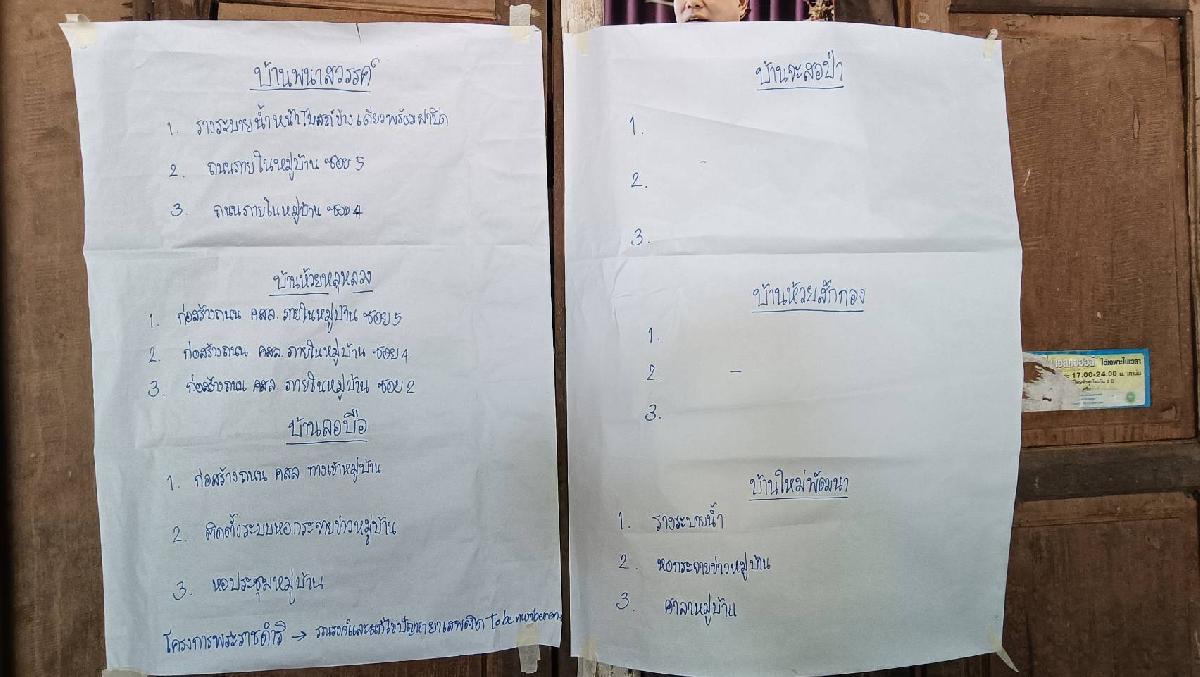 บ้านพนาสวรรค์
1. รางระบายน้ำหน้าโบสถ์ข้างเดียวพร้อมฝาปิด
2. ถนนภายในหมู่บ้าน ซอย 5
3. ถนนภายในหมู่บ้าน ซอย 4
บ้านห้วยหลุหลวง
1. ก่อสร้างถนน คสล. ภายในหมู่บ้าน ซอย 5
2. ก่อสร้างถนน คสล. ภายในหมู่บ้าน ซอย 4
3. ก่อสร้างถนน คสล. ภายในหมู่บ้าน ซอย 2
บ้านลอบือ
1. ก่อสร้างถนน คสล ทางเข้าหมู่บ้าน
2. ติดตั้งระบบหอกระจายข่าวหมู่บ้าน
3. หอประชุมหมู่บ้าน
โครงการพระราชดำริ → รณรงค์และแก้ไขปัญหายาเสพติด To be number one
บ้านจะสอป่า
1.
2. -
3.
บ้านห้วยสักกอง
1.
2 -
3.
บ้านใหม่พัฒนา
1. รางระบายน้ำ
2. หอกระจายข่าวหมู่บ้าน
3. ศาลาหมู่บ้าน
17.00-24.00 น.